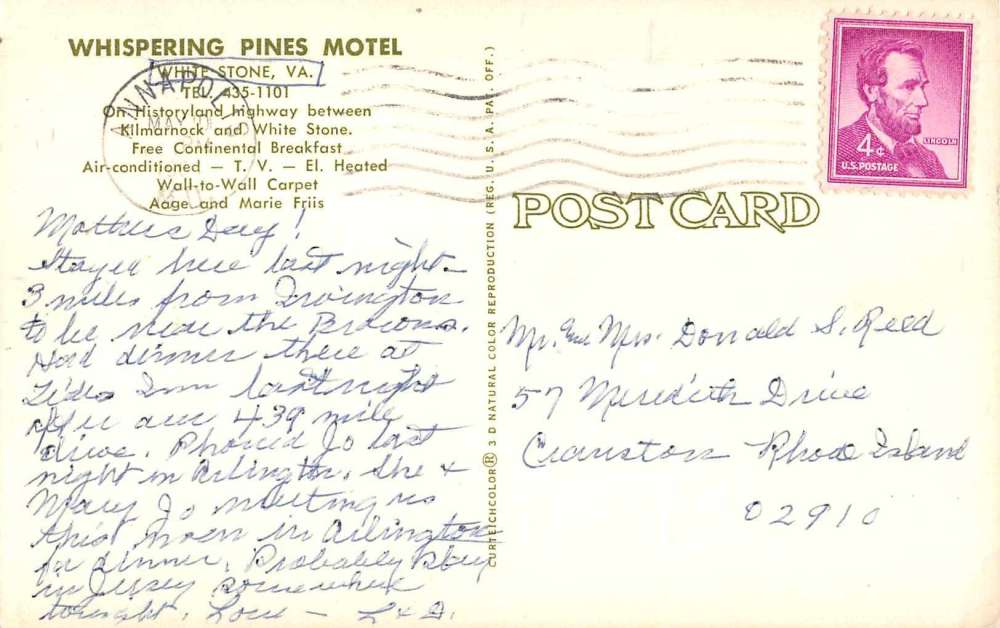 WHISPERING PINES MOTEL
WHITE STONE, VA.
TEL. 435-1101
On Historyland highway between
Kilmarnock and White Stone.
Free Continental Breakfast
Air-conditioned — T. V. — El. Heated
Wall-to-Wall Carpet
Aage and Marie Friis
ANNAPOLIS
MAY
Mothers Day!
Stayed here last night -
3 miles from Irvington
to be near the Browns.
Had dinner there at
Tides Inn last night
after our 439 mile
drive. Phoned Jo last
night in Arlington. She +
Mary Jo meeting us
this noon in Arlington
for dinner. Probably stay
in Jersey somewhere
tonight. Love - L + D.
CURTEICHCOLOR® 3 D NATURAL COLOR REPRODUCTION (REG. U. S. A. PAT. OFF.)
POST CARD
LINCOLN
4¢
U.S. POSTAGE
Mr. and Mrs. Donald S. Reed
57 Meredith Drive
Cranston Rhode Island
02910